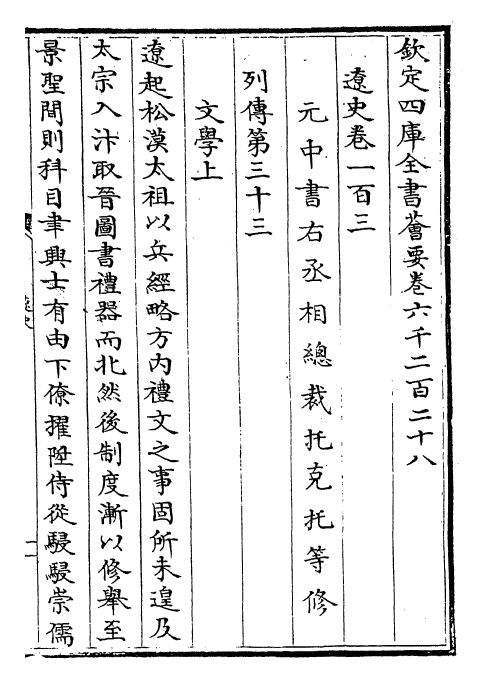 欽定四庫全書薈要卷六千二百二十八
遼史卷一百三
元中書右丞相總裁托克托等修
列傳第三十三
文學上
遼起松漠太祖以兵經略方內禮文之事固所未遑及
太宗入汴取晉圖書禮器而北然後制度漸以修舉至
景聖間則科目聿興士有由下僚擢陞侍從駸駸崇儒